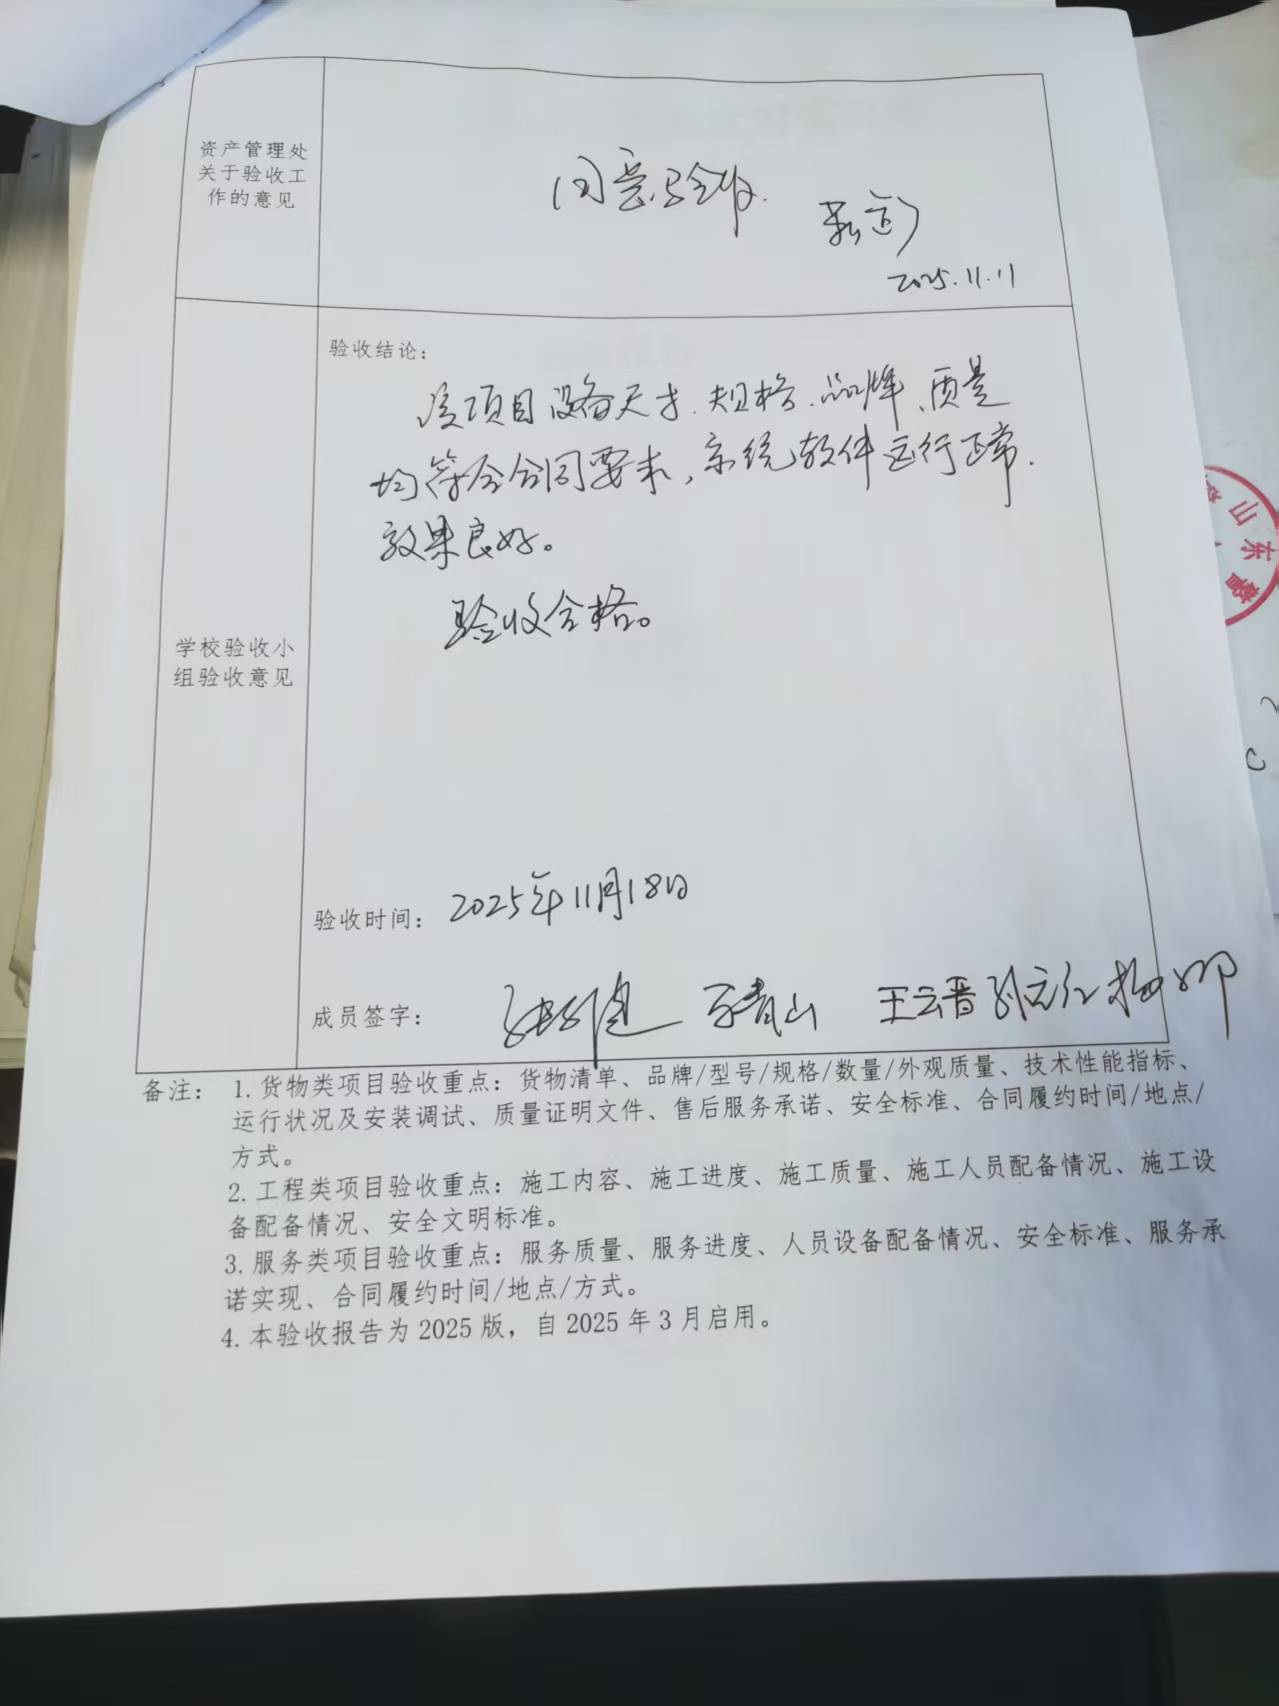 资产管理处
关于验收工
作的意见
同意验收.
2025.11.11
验收结论:
该项目设备尺寸.规格.品牌、质量
均符合合同要求,系统软件运行正常.
效果良好。
验收合格。
学校验收小
组验收意见
验收时间: 2025年11月18日
成员签字: 王云晋
备注: 1. 货物类项目验收重点: 货物清单、品牌/型号/规格/数量/外观质量、技术性能指标、
运行状况及安装调试、质量证明文件、售后服务承诺、安全标准、合同履约时间/地点/
方式。
2. 工程类项目验收重点: 施工内容、施工进度、施工质量、施工人员配备情况、施工设
备配备情况、安全文明标准。
3. 服务类项目验收重点: 服务质量、服务进度、人员设备配备情况、安全标准、服务承
诺实现、合同履约时间/地点/方式。
4. 本验收报告为 2025 版, 自 2025 年 3 月启用。
山东警